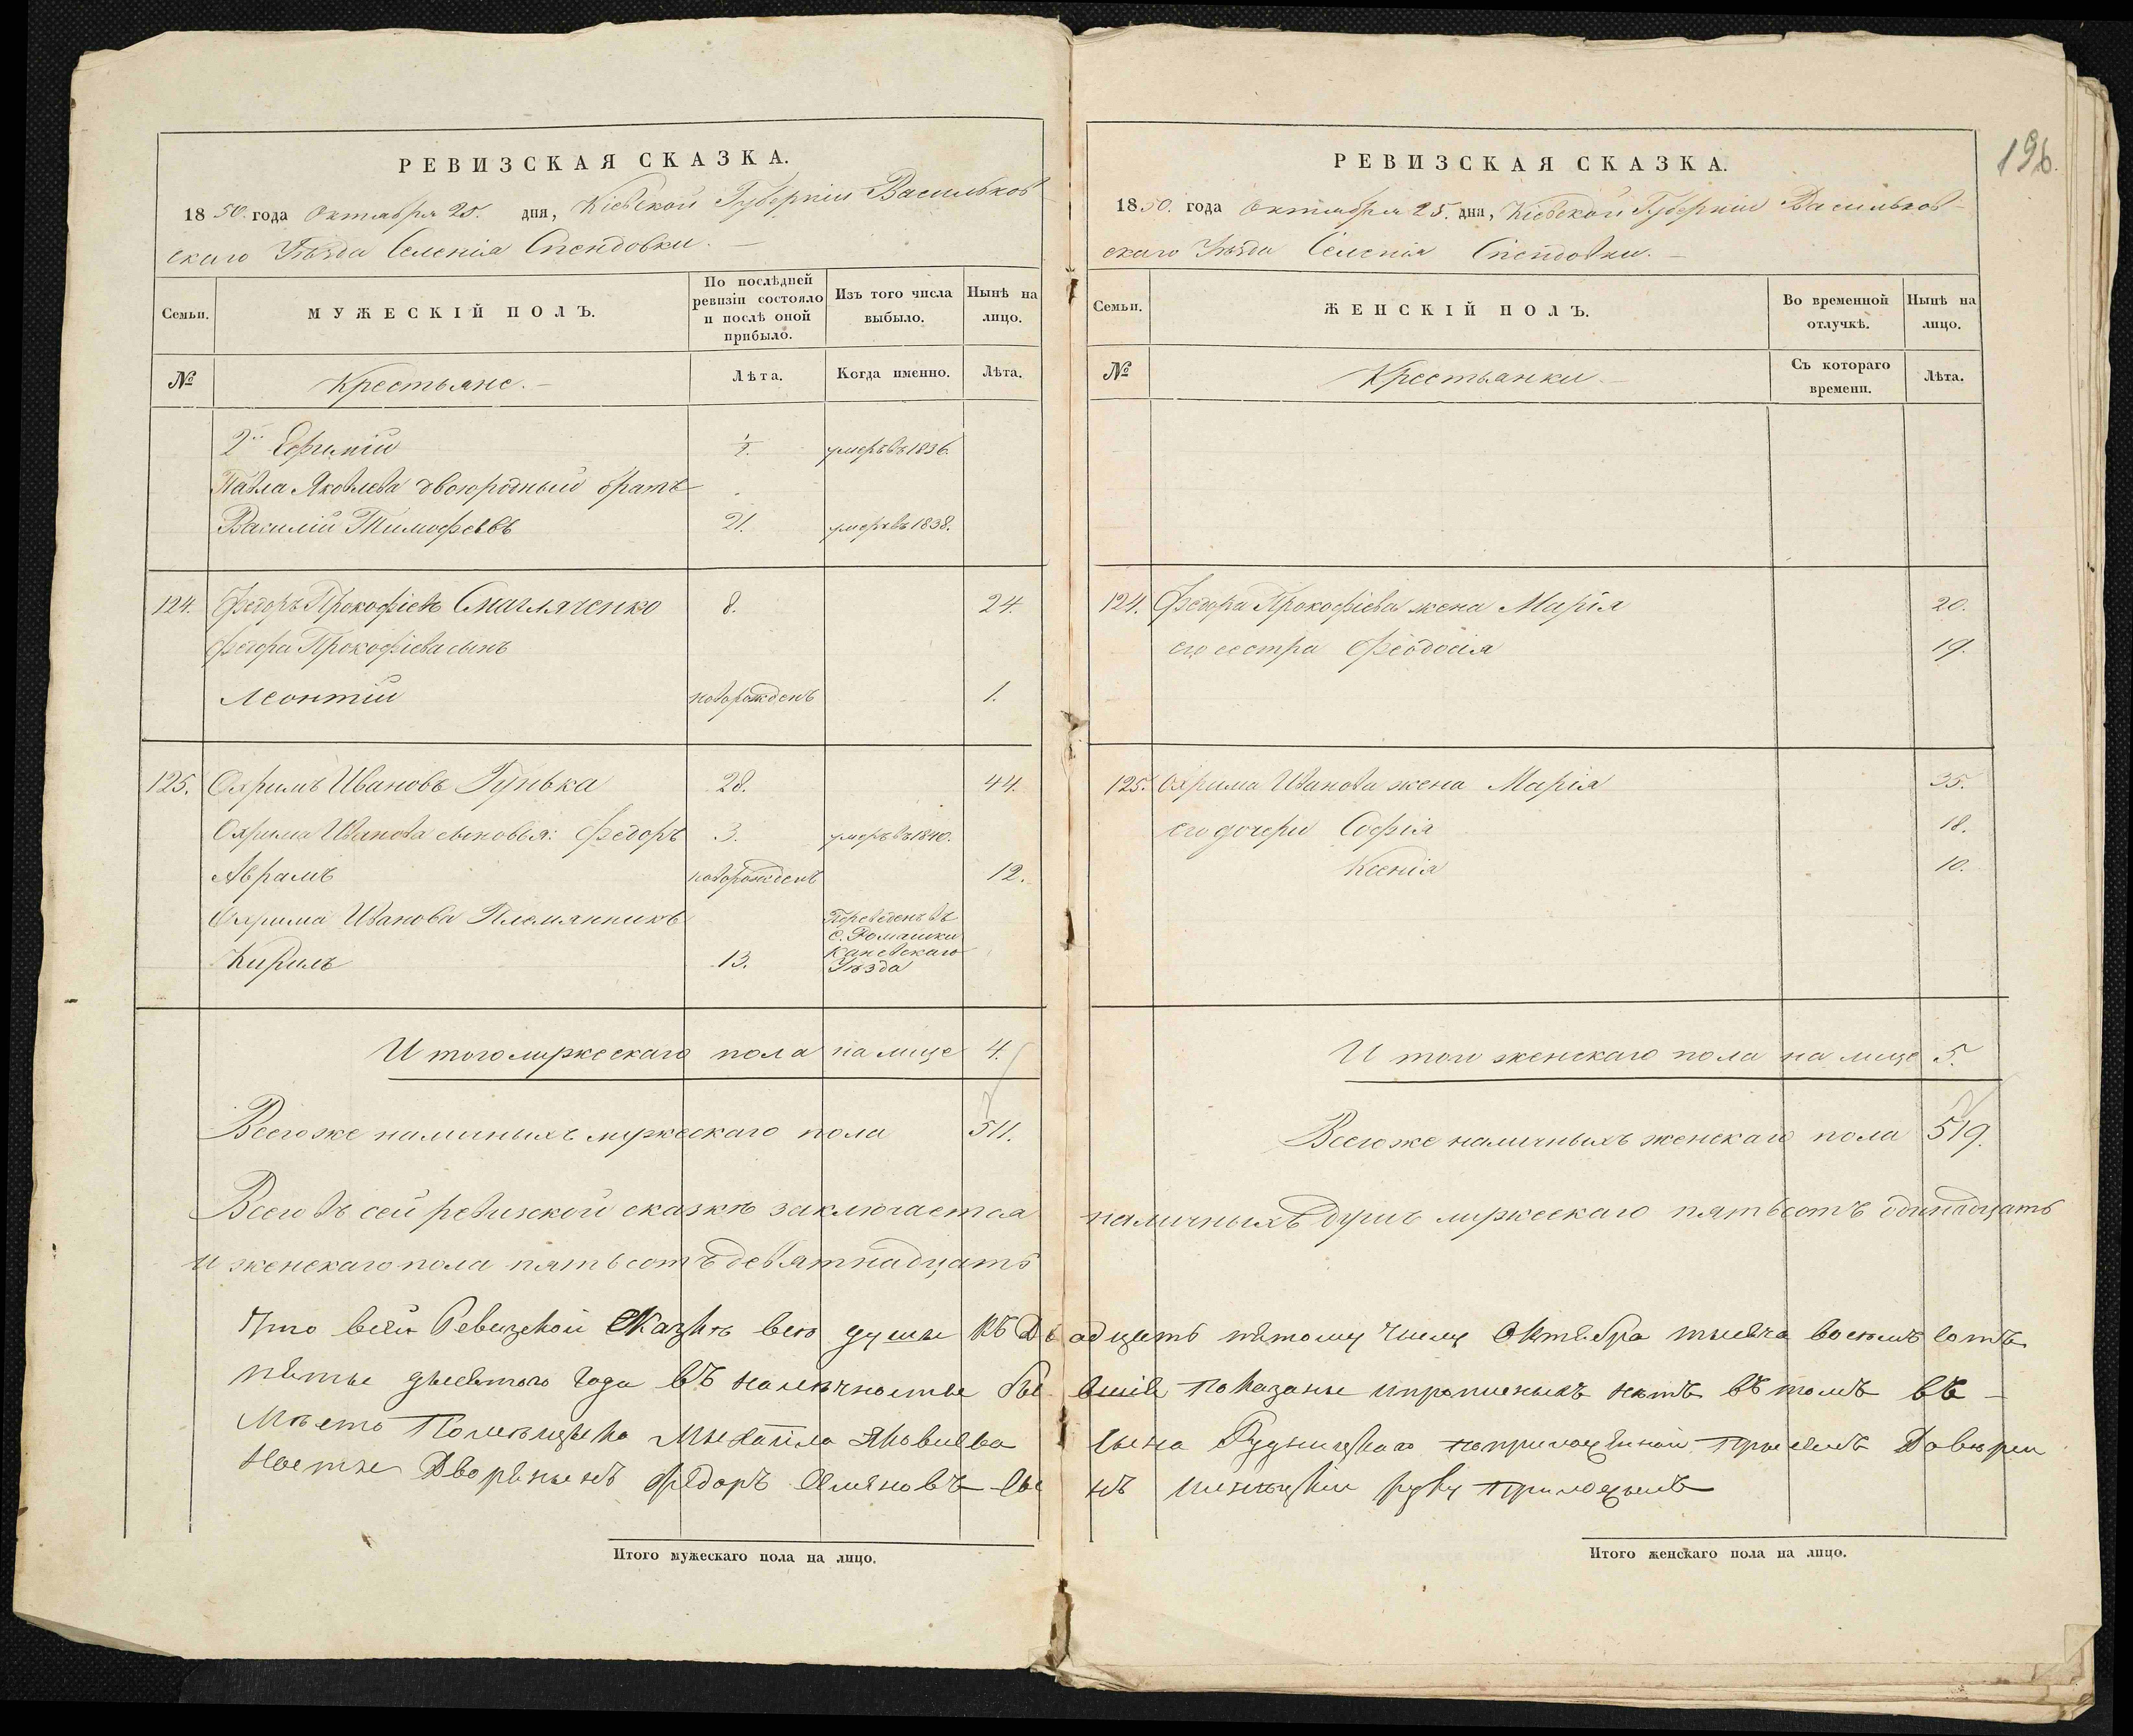 РЕВИЗСКАЯ СКАЗКА.
1850. года Октября 25. дня, Кіевской Губерніи Васильков
скаго Уѣзда Селенія
Семьи.
МУЖЕСКІЙ ПОЛЪ.
По послѣдней ревизіи состояло и послѣ оной прибыло.
Изъ того числа выбыло.
Нынѣ на лицо.
№
Крестьяне.
Лѣта.
Когда именно.
Лѣта.
2й Ефимій 1/2. умеръ въ 1836.
Павла Яковлева двоюродный братъ
Василій Тимофеевъ 21. умеръ въ 1838.
124. Федоръ Прокофіевъ 8. 24
Федора Прокофіева сынъ
Леонтій новорожденъ 1.
125. Охримъ Ивановъ Гунька 28. 44.
Охрима Иванова сыновья: Федоръ 3. умеръ въ 1840.
Аврамъ новорожденъ 12.
Охрима Иванова Племянникъ
Кирилъ 13. Переведенъ въ
с. Ромашки
Каневскаго
Уѣзда
Итого мужескаго пола на лице 4.
Всего же наличныхъ мужескаго пола 511.
Всего въ сей ревизской сказкѣ заключается
и женскаго пола пятьсотъ девятнадцать
Что всей Ревизской Сказкѣ всю душы къ Дв
пятьдесятого года въ наличности бы
Мѣсто Помѣщика Михаила Яковлева
ности Дворянинъ Федоръ сы
Итого мужескаго пола на лицо.
196.
РЕВИЗСКАЯ СКАЗКА.
1850. года Октября 25. дня, Кіевской Губерніи Васильков
скаго Уѣзда Селенія
Семьи.
ЖЕНСКІЙ ПОЛЪ.
Во временной отлучкѣ.
Нынѣ на лицо.
№
Крестьянки
Съ котораго времени.
Лѣта.
124. Федора Прокофіева жена Марія 20.
его сестра Феодосія 19.
125. Охрима Иванова жена Марія 35.
его дочери Софія 18.
Ксенія 10.
Итого женскаго пола на лице 5.
Всего же наличныхъ женскаго пола 519.
наличныхъ душъ мужескаго пятьсотъ одинадцать
адцать пятому числу Октября тысяча восемъ сотъ
вшія показаны и прописныхъ нѣтъ въ томъ въ
сына
нъ руку приложилъ
Итого женскаго пола на лицо.